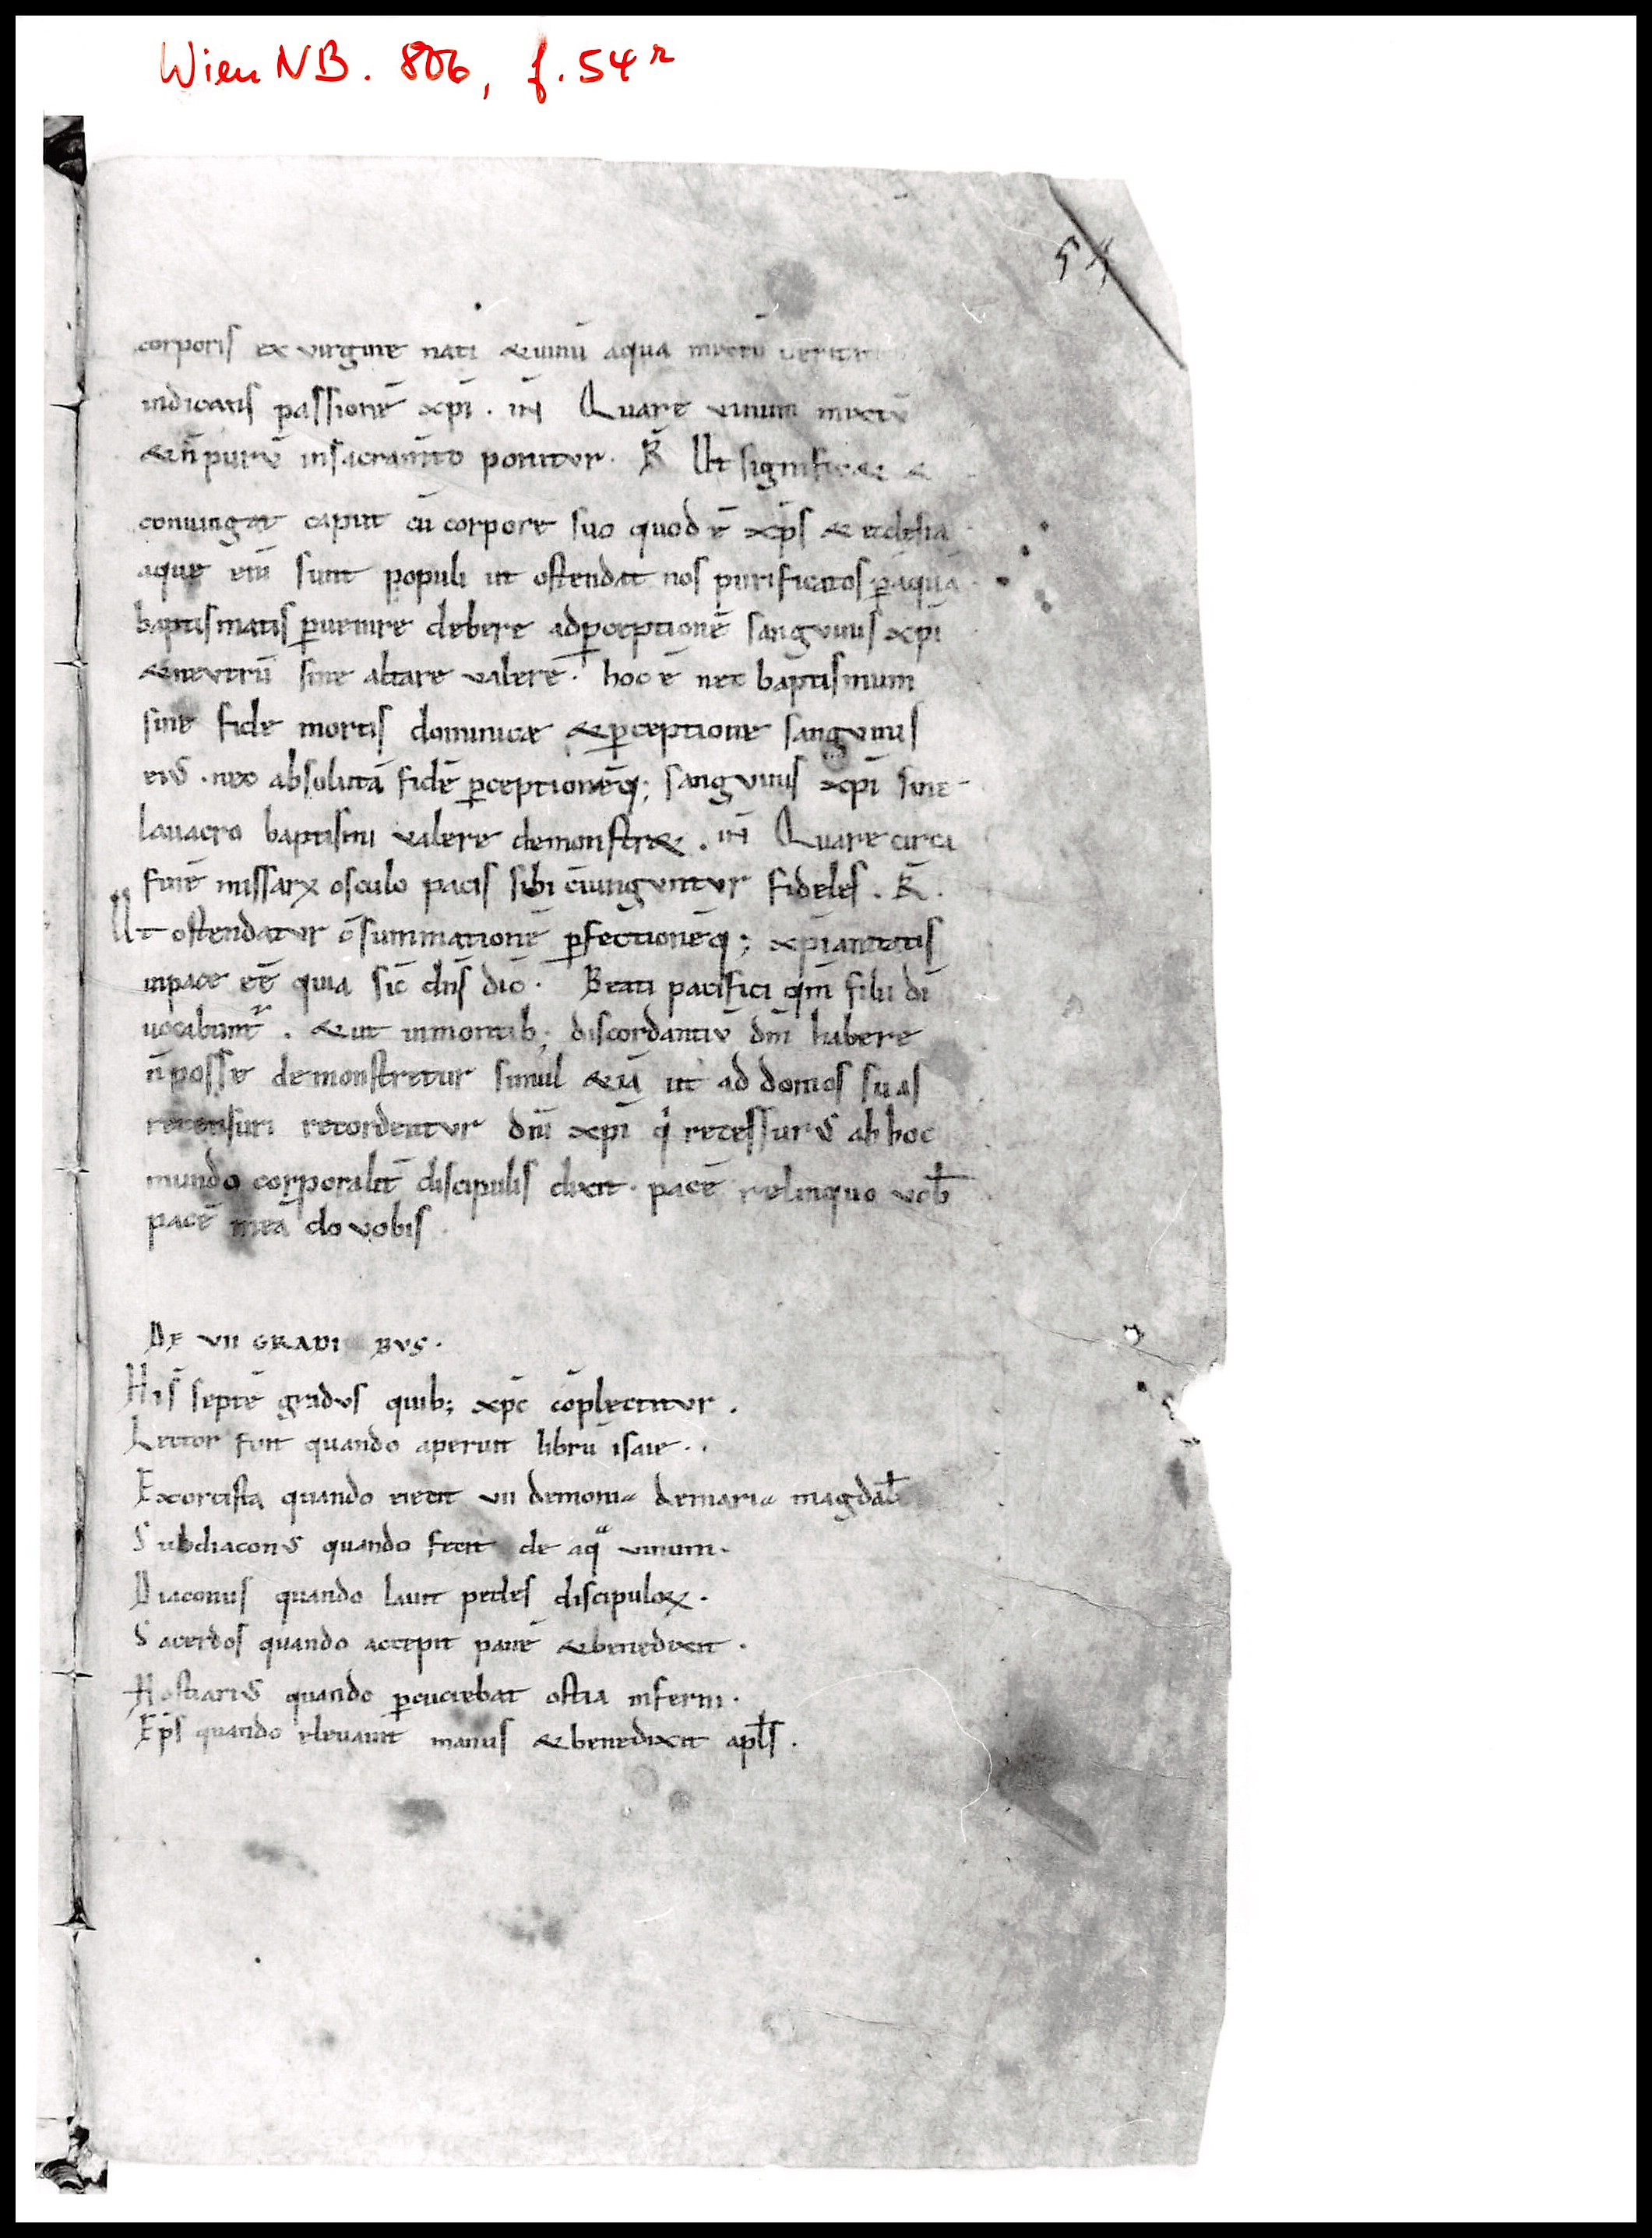 Wien NB. 806, f. 54r
54
corporis ex virgine nati &uinū aqua mixtū
indicatis passionē xp̄i . iñ Quare uinum mixtū
&n̄ purū insacram̄to ponitur . R̄ Ut significa& &
coniungat caput cū corpore suo quod ē xp̄s & ecclesia
aque eni̅ sunt populi ut ostendat nos purificatos p̱aquā
baptismatis p̱uenire debere adp̱ceptionē sanguinis xp̄i
&neutrū sine altare valere . hoc ē nec baptismum
sine fide mortis dominicæ &p̱ceptione sanguinis
eiꝰ . nec absolutā fidē p̱ceptionēq; sanguinis xp̄i sine
lauacro baptismi valere demonstr& . iñ Quare circa
finē missarꝝ osculo pacis sibi c̄iunguntur fideles . R̄ .
Ut ostendatur c̄summationē p̱fectionēq; xp̄ianitatis
inpace eē quia sic̄ dn̄s dic̄ . Beati pacifici qm̄ filii dī
uocabunt᷑ . &ut inmontib; discordantiū dm̄ habere
n̄ posse demonstretur simul &iā ut ad domos suas
recensuri recordentur dn̄i xp̄i qͥ recessurꝰ ab hoc
mundo corporalit̄ discipulis dixit . pacē relinquo uob̄
pacē meā do vobis
DE VII GRADIBVS .
His septē gradus quib; xp̄c cōplectitur .
Lector fuit quando aperuit librū isaie .
Exorcista quando eiecit VII demonia demaria magdal̄
Subdiaconꝰ quando fecit de aqͣ uinum .
Diaconus quando lauit pedes discipuloꝝ .
Sacerdos quando accepit panē &benedixit .
Hostiariꝰ quando p̱cuciebat ostia inferni .
Ep̄s quando eleuauit manus &benedixit apl̄s .